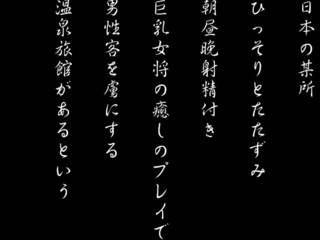 日本の某所
ひっそりとたたずみ
朝昼晩射精付き
巨乳女将の癒しのプレイで
男性客を虜にする
温泉旅館があるという